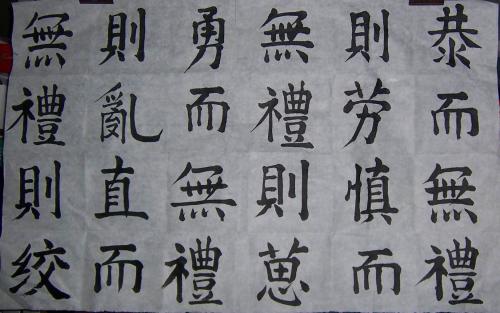 恭而無禮
則劳慎而
無禮則葸
勇而無禮
則亂直而
無禮則绞